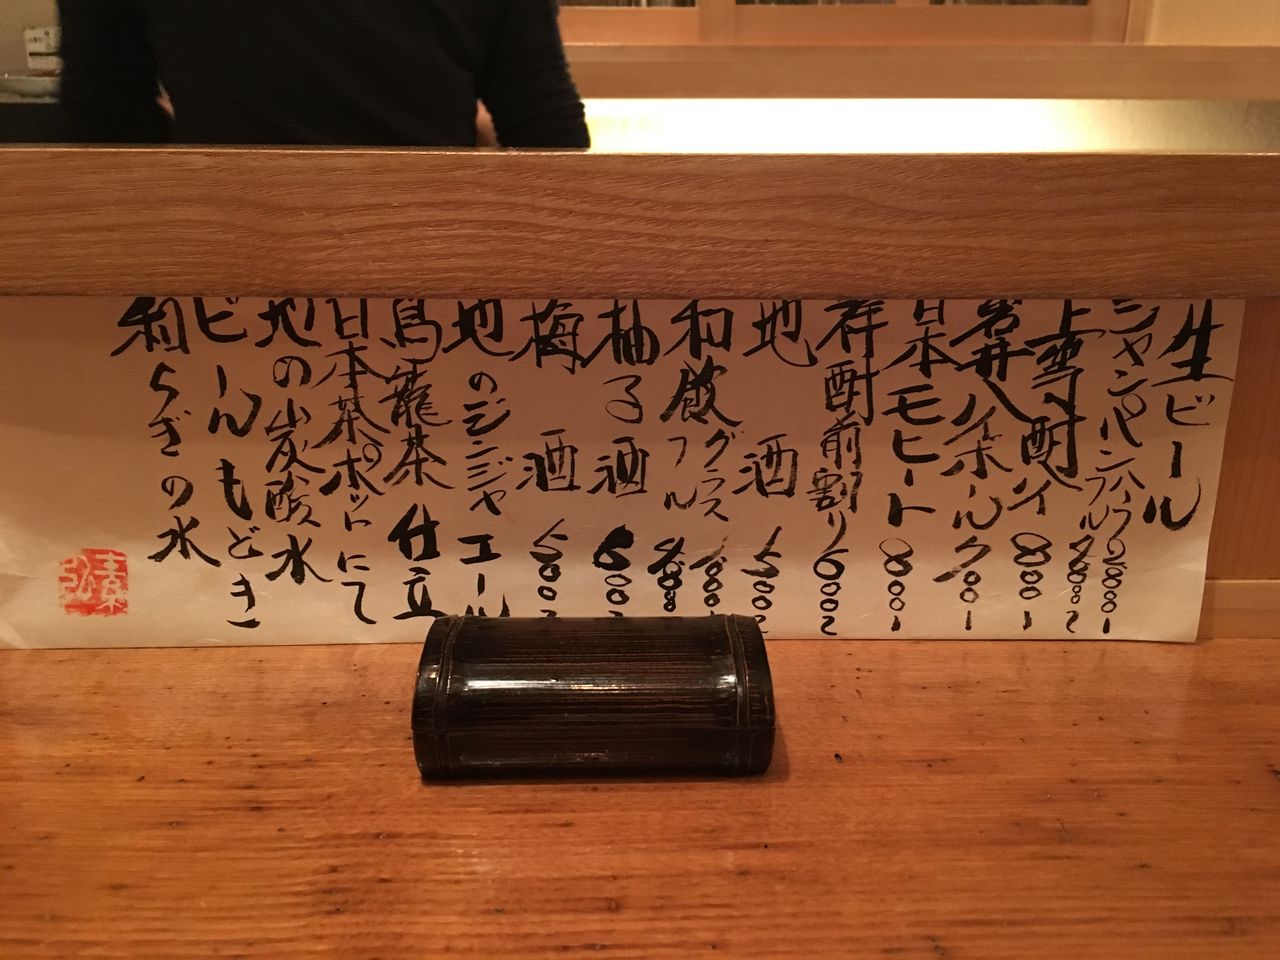 生ビール
シャンパン ハーフ 5000〜 フル 8000〜
上雪酎ハイ 800〜
岩井ハイボール 700〜
日本モヒート 800〜
祥酎前割り 600〜
地酒 500〜
和飲 グラス 1000〜 フル 8000〜
柚子酒 600〜
梅酒 500〜
地のジンジャエール
烏龍茶 仕立
日本茶 ポットにて
地の炭酸水
ビーんもどき
和らぎの水